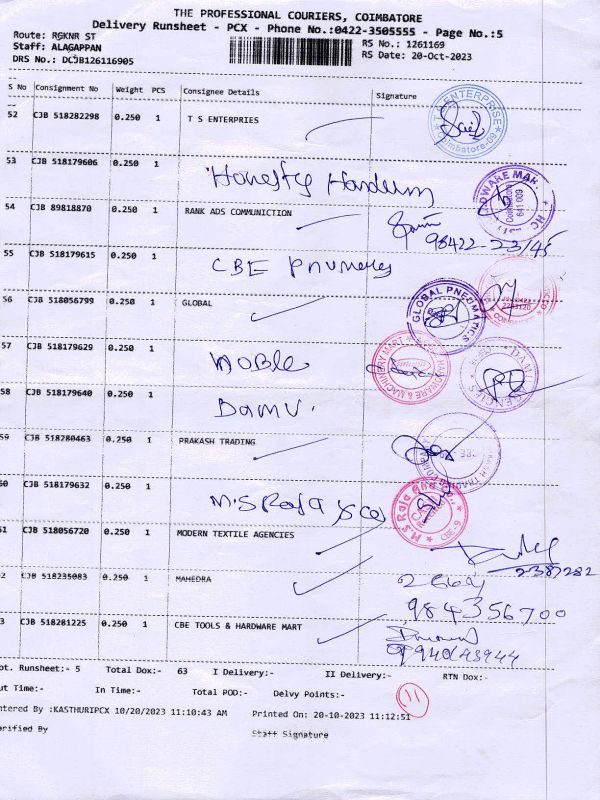 THE PROFESSIONAL COURIERS, COIMBATORE
Delivery Runsheet - PCX - Phone No.:0422-3505555 - Page No.:5
Route: RGKNR ST
RS No.: 1261169
Staff: ALAGAPPAN
RS Date: 20-Oct-2023
DRS No.: DCJB126116905
S No Consignment No Weight PCS Consignee Details Signature
52 CJB 518282298 0.250 1 T S ENTERPRIES
53 CJB 518179606 0.250 1 Honesty
54 CJB 89818870 0.250 1 RANK ADS COMMUNICTION
98422-23145
55 CJB 518179615 0.250 1 CBE
56 CJB 518056799 0.250 1 GLOBAL
GLOBAL PNEUMATICS
57 CJB 518179629 0.250 1 NOBLE
58 CJB 518179640 0.250 1 DAMU.
59 CJB 518280463 0.250 1 PRAKASH TRADING
60 CJB 518179632 0.250 1 M.S Raja & co
M.S Raja And Co., CBE-9
61 CJB 518056720 1 MODERN TEXTILE AGENCIES
2387282
2 CJB 518235083 0.250 1 MAHEDRA
984356700
3 CJB 518281225 0.250 1 CBE TOOLS & HARDWARE MART
ot. Runsheet:- 5 Total Dox:- 63 I Delivery:- II Delivery:- RTN Dox:-
ut Time:- In Time:- Total POD:- Delvy Points:-
11
ntered By :KASTHURIPCX 10/20/2023 11:10:43 AM Printed On: 20-10-2023 11:12:51
erified By Staff Signature